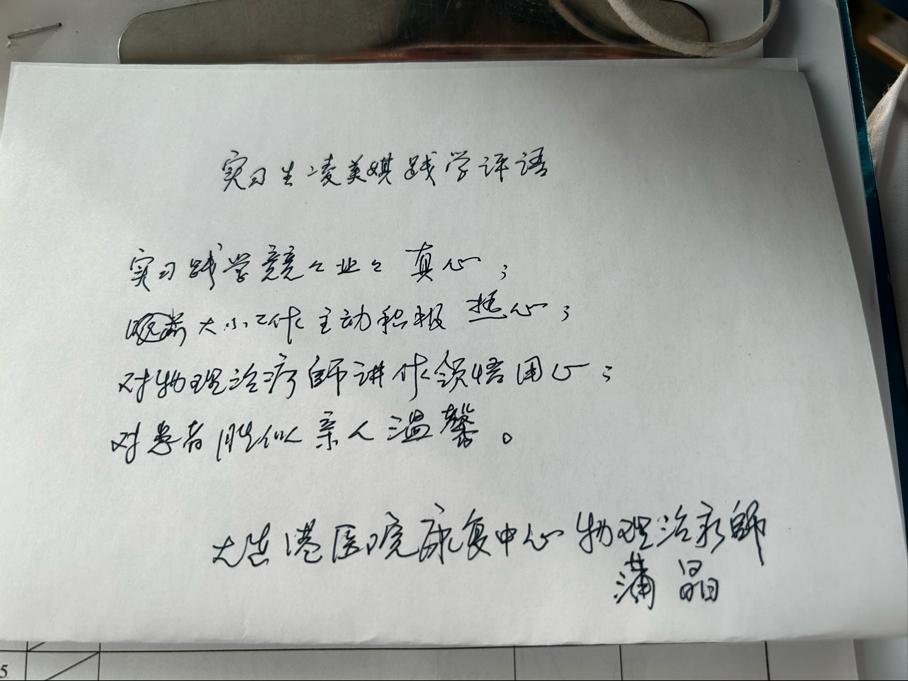 实习生凌美娸践学评语
实习践学競々业々真心；
大小工作主动积极热心；
对物理治疗師讲作领悟用心；
对患者胜似亲人温馨。
大港医院康复中心物理治疗師
蒲晶
5